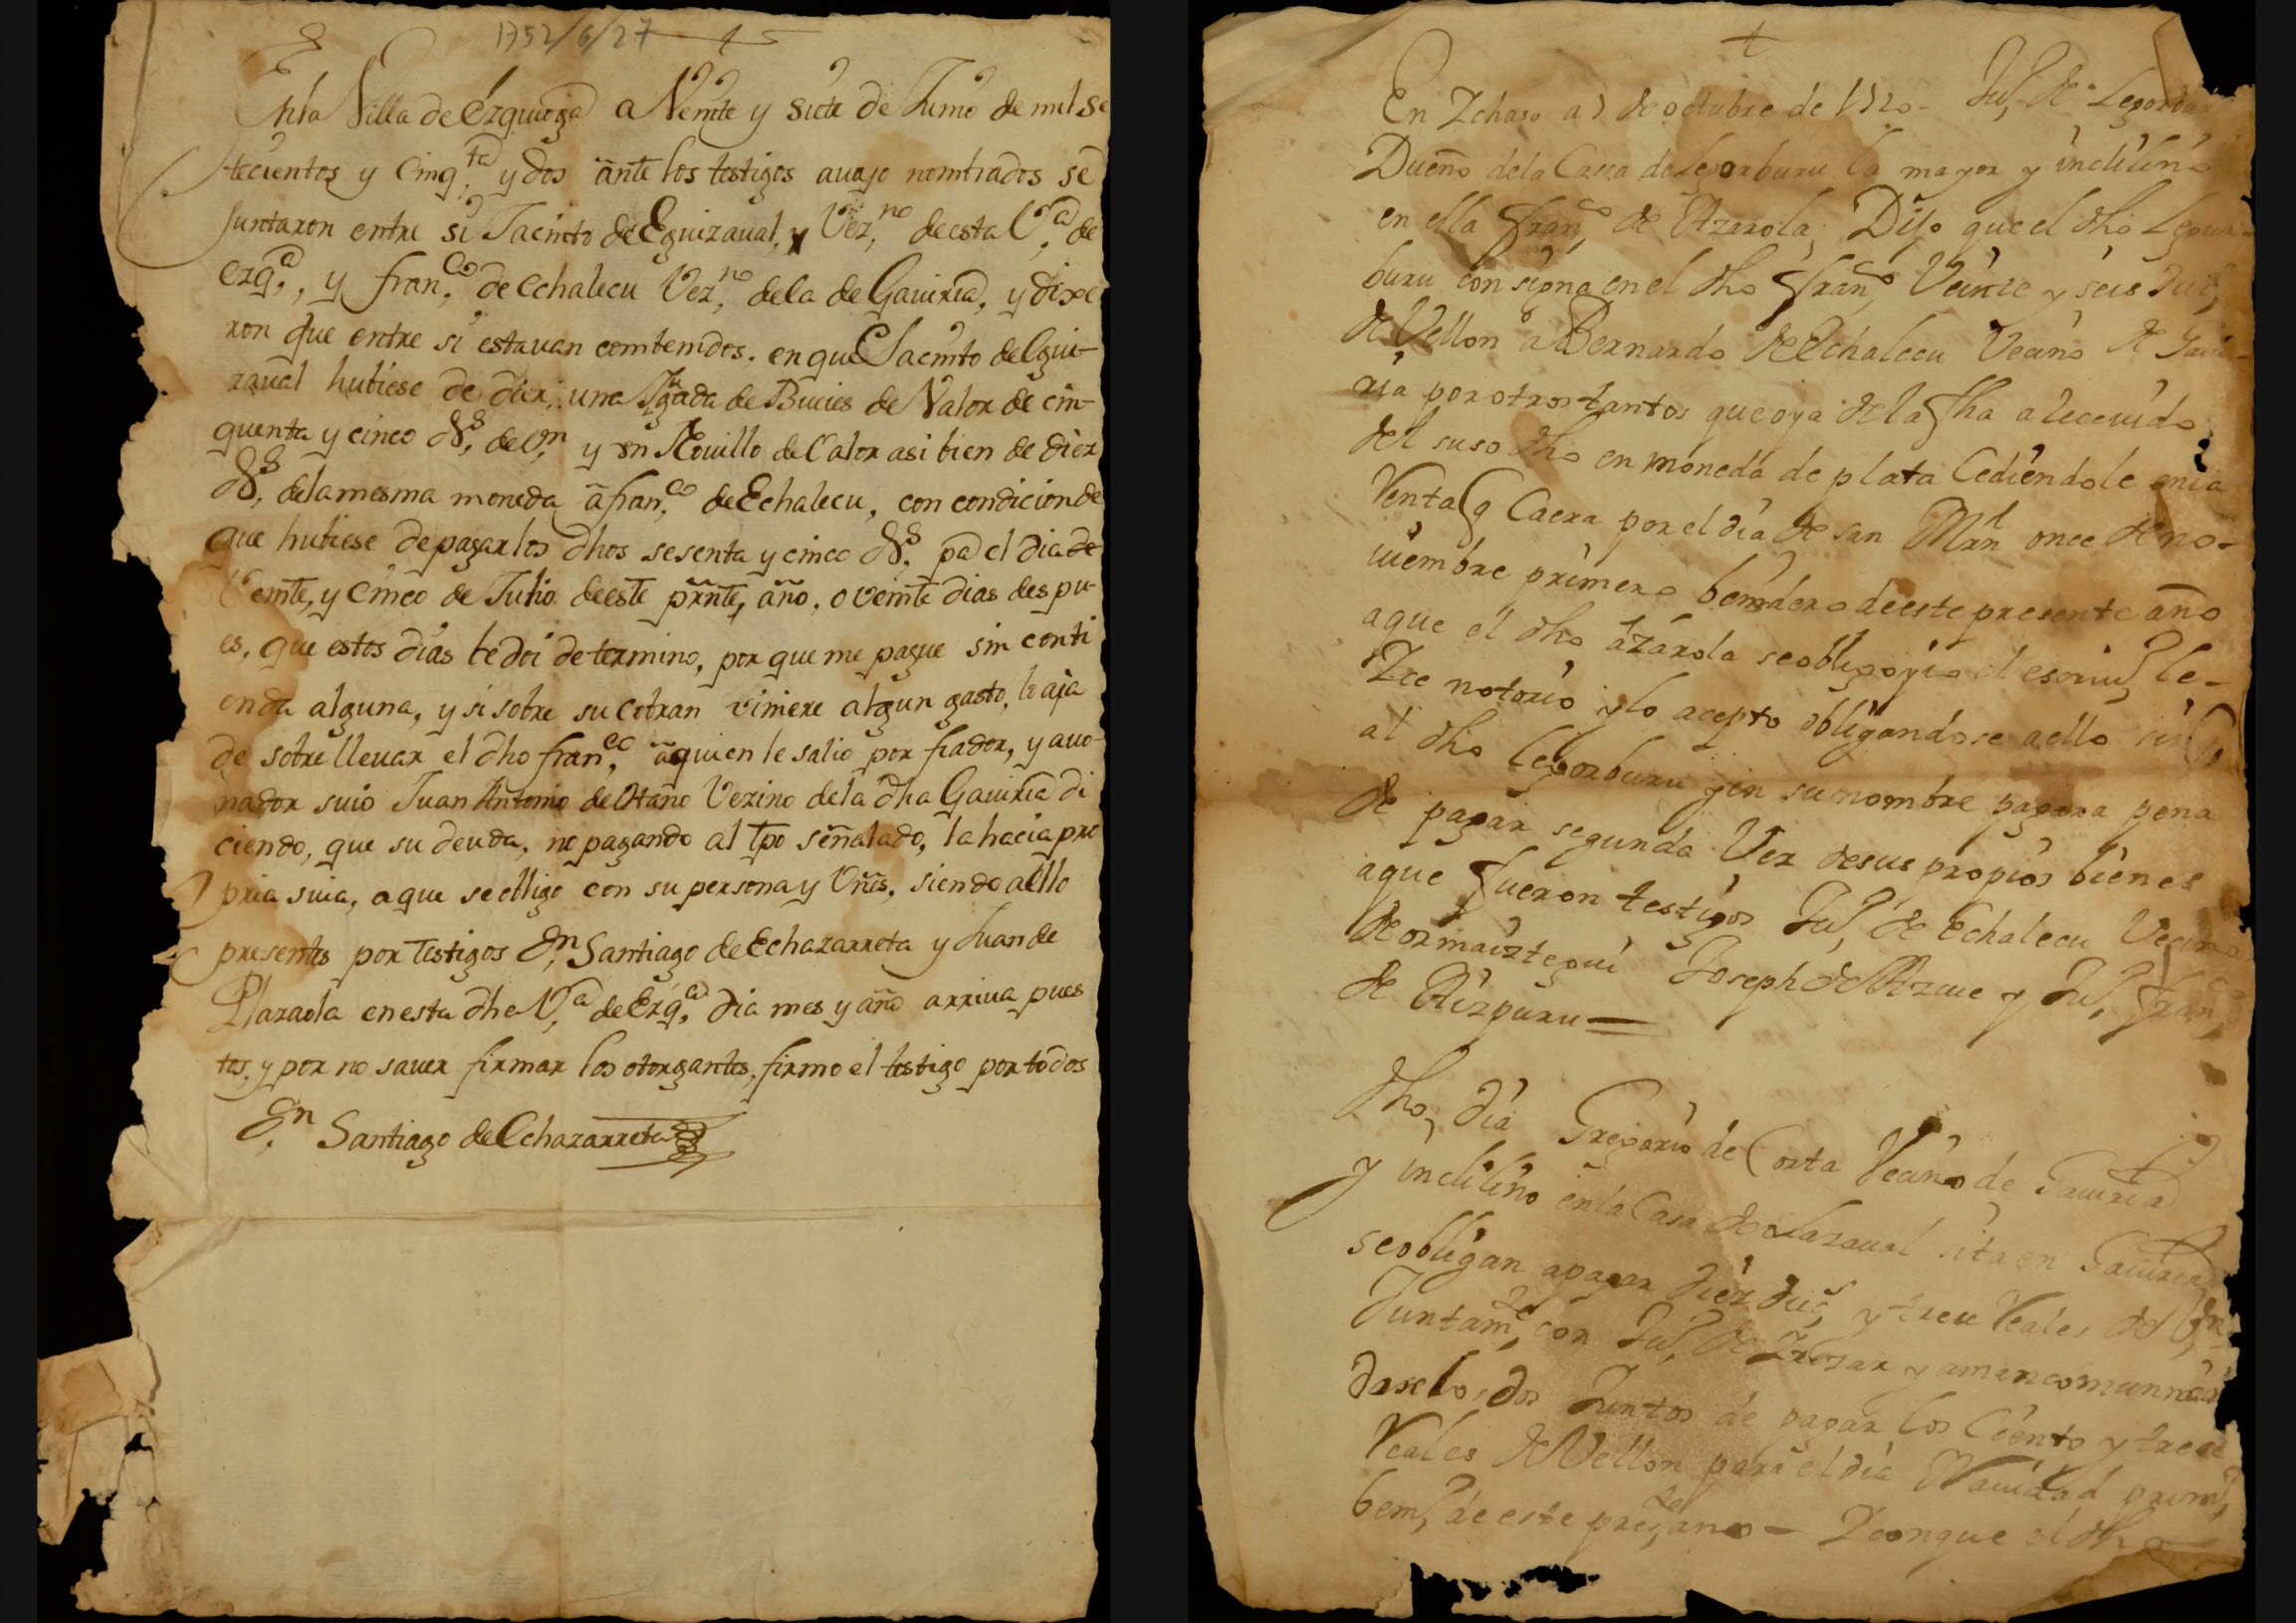 1752/6/27
Enla Villa de Ezquioga a Veinte y siete de Junio de mil se
tecientos y Cinq.ta y dos ante los testigos auajo nombrados se
Juntaron entre si Jacinto de Eguizaual, y Vez.no de esta V.a de
ezq.a, y fran.co de echalecu Vez.no dela de Gauiria, y dixe
ron que entre si estauan combenidos. en que Jacinto de Egui-
zaual hubiese de dar, una Jugada de Bueies de Valor de cin-
quenta y cinco ds. de v.n y un Nouillo de Valor asi bien de diez
ds. dela mesma moneda a fran.co de Echalecu, con condicion de
que hubiese de pagar los dhos sesenta y cinco ds. pa el dia de
Veinte, y Cinco de Julio de este prnte, año, o veinte dias despu-
es, que estos dias le doi de termino, por que me pague sin conti
enda alguna, y si sobre su cobran viniere algun gasto, lo aja
de sobrelleuar el dho fran.co a quien le salio por fiador, y auo-
nador suio Juan Antonio de Otaño Vezino dela dha Gauiria di
ciendo, que su deuda, no pagando al tpo señalado, la hacia pro
pria suia, a que se obligo con su persona y vñes, siendo a ello
presentes por Testigos D.n Santiago de Echazarreta y Juan de
Plazaola en esta dha V.a de Ezq.a dia mes y año arriua pues
tos, y por no sauer firmar los otorgantes, firmo el testigo por todos
D.n Santiago de Echazarreta
+
En Ichaso a 7 de octubre de 1720 - Ju, de Legorbu
Dueño dela Cassa de Legorburu la mayor y inclilino
en ella fran.co de Azarola, Dijo que el dho Legor
buru consigna en el dho fran.co Veinte y seis Duc,
de Vellon a Bernardo de Echalecu Vecino de Gaui-
ria por otros tantos que oya dela fha a receuido
del suso dho en moneda de plata Cediendole en la
Venta q Caera por el dia de san Mrn once de no-
uiembre primero bendero de este presente año
a que el dho azarola se obligo y io el escriu, le
Ize notorio y lo acepto obligandose a ello
al dho legorburu y en su nombre pagara pena
de pagar segunda Vez de sus propios bienes
a que fueron testigos Ju, de Echalecu Vecino
de ormaiztegui Joseph de Azcue y Ju, fran.co
de Aizpuru =
dho, dia Gregorio de Corta Vecino de Gauiria
y inclilino en la Casa de olazaual sita en Gauiria
se obligan a pagar diez duc, y trece Reales de V.n
Juntam.te con Ju, de y amancomunnan
dose los dos Juntos de pagar los Ciento y trece
Reales de Vellon para el dia Nauidad prim,
bem, de este pres.te ano - Y con que el dho